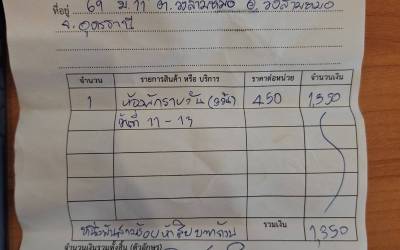 ที่อยู่ 69 ม.11 ต.วังสามหมอ อ.วังสามหมอ
จ.อุดรธานี
จำนวน รายการสินค้า หรือ บริการ ราคาต่อหน่วย จำนวนเงิน
1 ห้องพักรายวัน (3วัน) 450 1,350
วันที่ 11 - 13
หนึ่งพันสามร้อยห้าสิบบาทถ้วน รวมเงิน 1350
จำนวนเงินรวมทั้งสิ้น (ตัวอักษร)